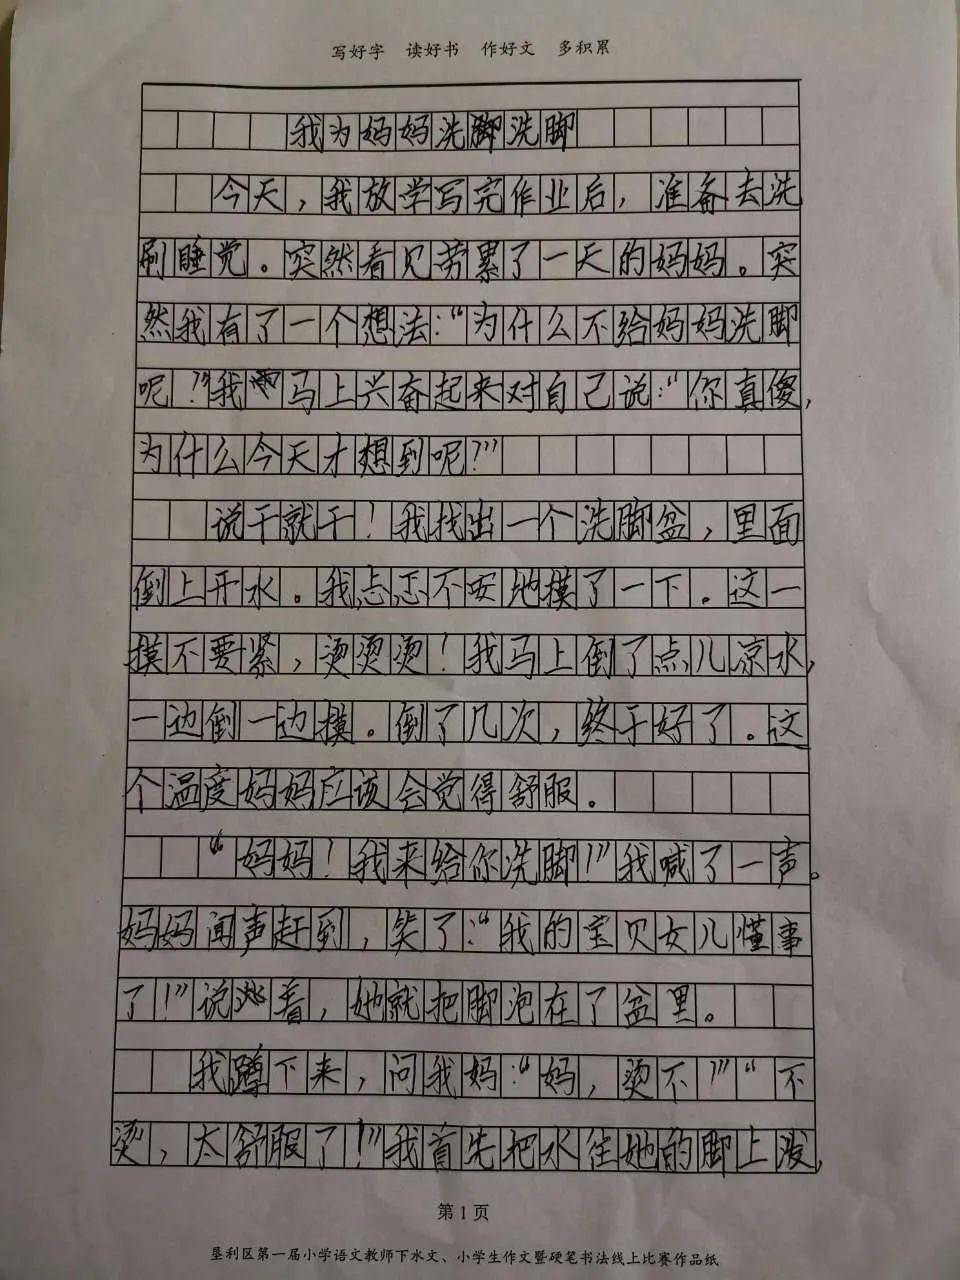 写好字 读好书 作好文 多积累
我为妈妈洗脚洗脚
今天，我放学写完作业后，准备去洗
刷睡觉。突然看见劳累了一天的妈妈。突
然我有了一个想法：“为什么不给妈妈洗脚
呢？”我马上兴奋起来对自己说：“你真傻，
为什么今天才想到呢？”
说干就干！我找出一个洗脚盆，里面
倒上开水。我忐忑不安地摸了一下。这一
摸不要紧，烫烫烫！我马上倒了点儿凉水，
一边倒一边摸。倒了几次，终于好了。这
个温度妈妈应该会觉得舒服。
“妈妈！我来给你洗脚！”我喊了一声。
妈妈闻声赶到，笑了：“我的宝贝女儿懂事
了！”说着，她就把脚泡在了盆里。
我蹲下来，问我妈：“妈，烫不？”“不
烫，太舒服了！”我首先把水往她的脚上泼，
第1页
垦利区第一届小学语文教师下水文、小学生作文暨硬笔书法线上比赛作品纸